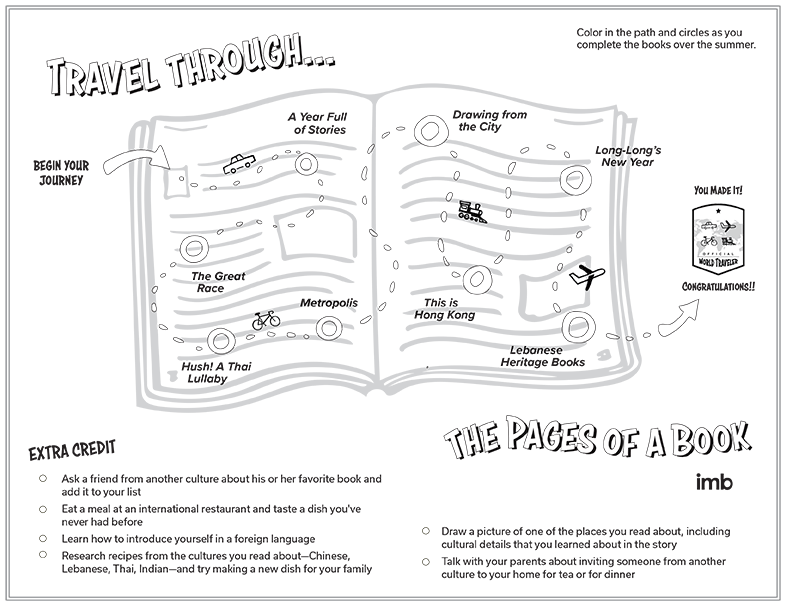 Color in the path and circles as you
complete the books over the summer.
TRAVEL THROUGH...
BEGIN YOUR
JOURNEY
A Year Full
of Stories
Drawing from
the City
Long-Long's
New Year
The Great
Race
Metropolis
Hush! A Thai
Lullaby
This is
Hong Kong
Lebanese
Heritage Books
YOU MADE IT!
OFFICIAL
WORLD TRAVELER
CONGRATULATIONS!!
THE PAGES OF A BOOK
imb
EXTRA CREDIT
Ask a friend from another culture about his or her favorite book and
add it to your list
Eat a meal at an international restaurant and taste a dish you've
never had before
Learn how to introduce yourself in a foreign language
Research recipes from the cultures you read about—Chinese,
Lebanese, Thai, Indian—and try making a new dish for your family
Draw a picture of one of the places you read about, including
cultural details that you learned about in the story
Talk with your parents about inviting someone from another
culture to your home for tea or for dinner